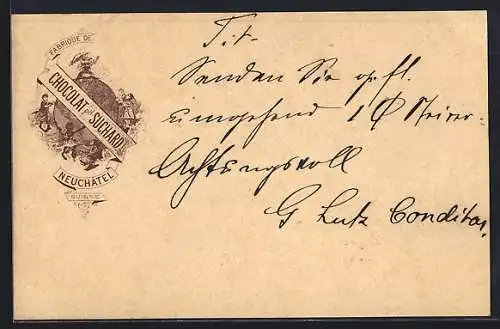 FABRIQUE DE
CHOCOLAT PH. SUCHARD
NEUCHATEL
SUISSE
Tit.
Senden Sie
umgehend 1
Achtungsvoll
G. Lutz Conditor.